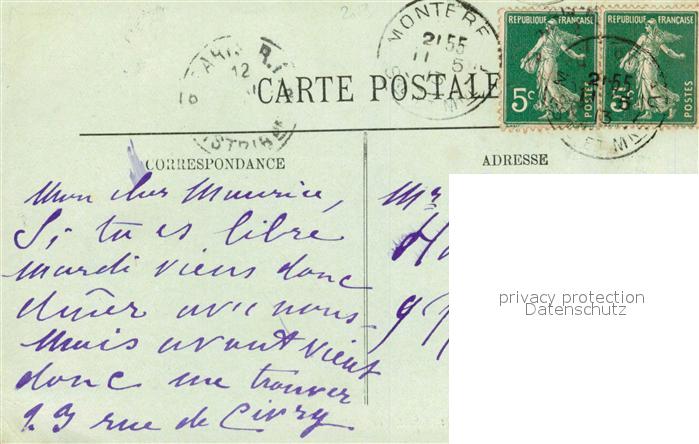 2013
MONTERE
21 55
11 5
PARIS R.
12
DISTRIB
REPUBLIQUE FRANÇAISE
5c POSTES
REPUBLIQUE FRANÇAISE
5c POSTES
21 55
ET M
CARTE POSTALE
CORRESPONDANCE
ADRESSE
Mon cher Maurice,
Si tu es libre
mardi viens donc
dîner avec nous
Mais avant vient
donc me trouver
23 rue de Civry
Mr
privacy protection
Datenschutz